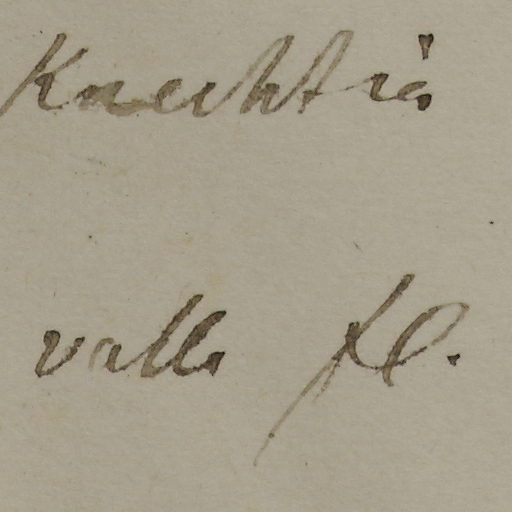 Knecht is
valle fl.